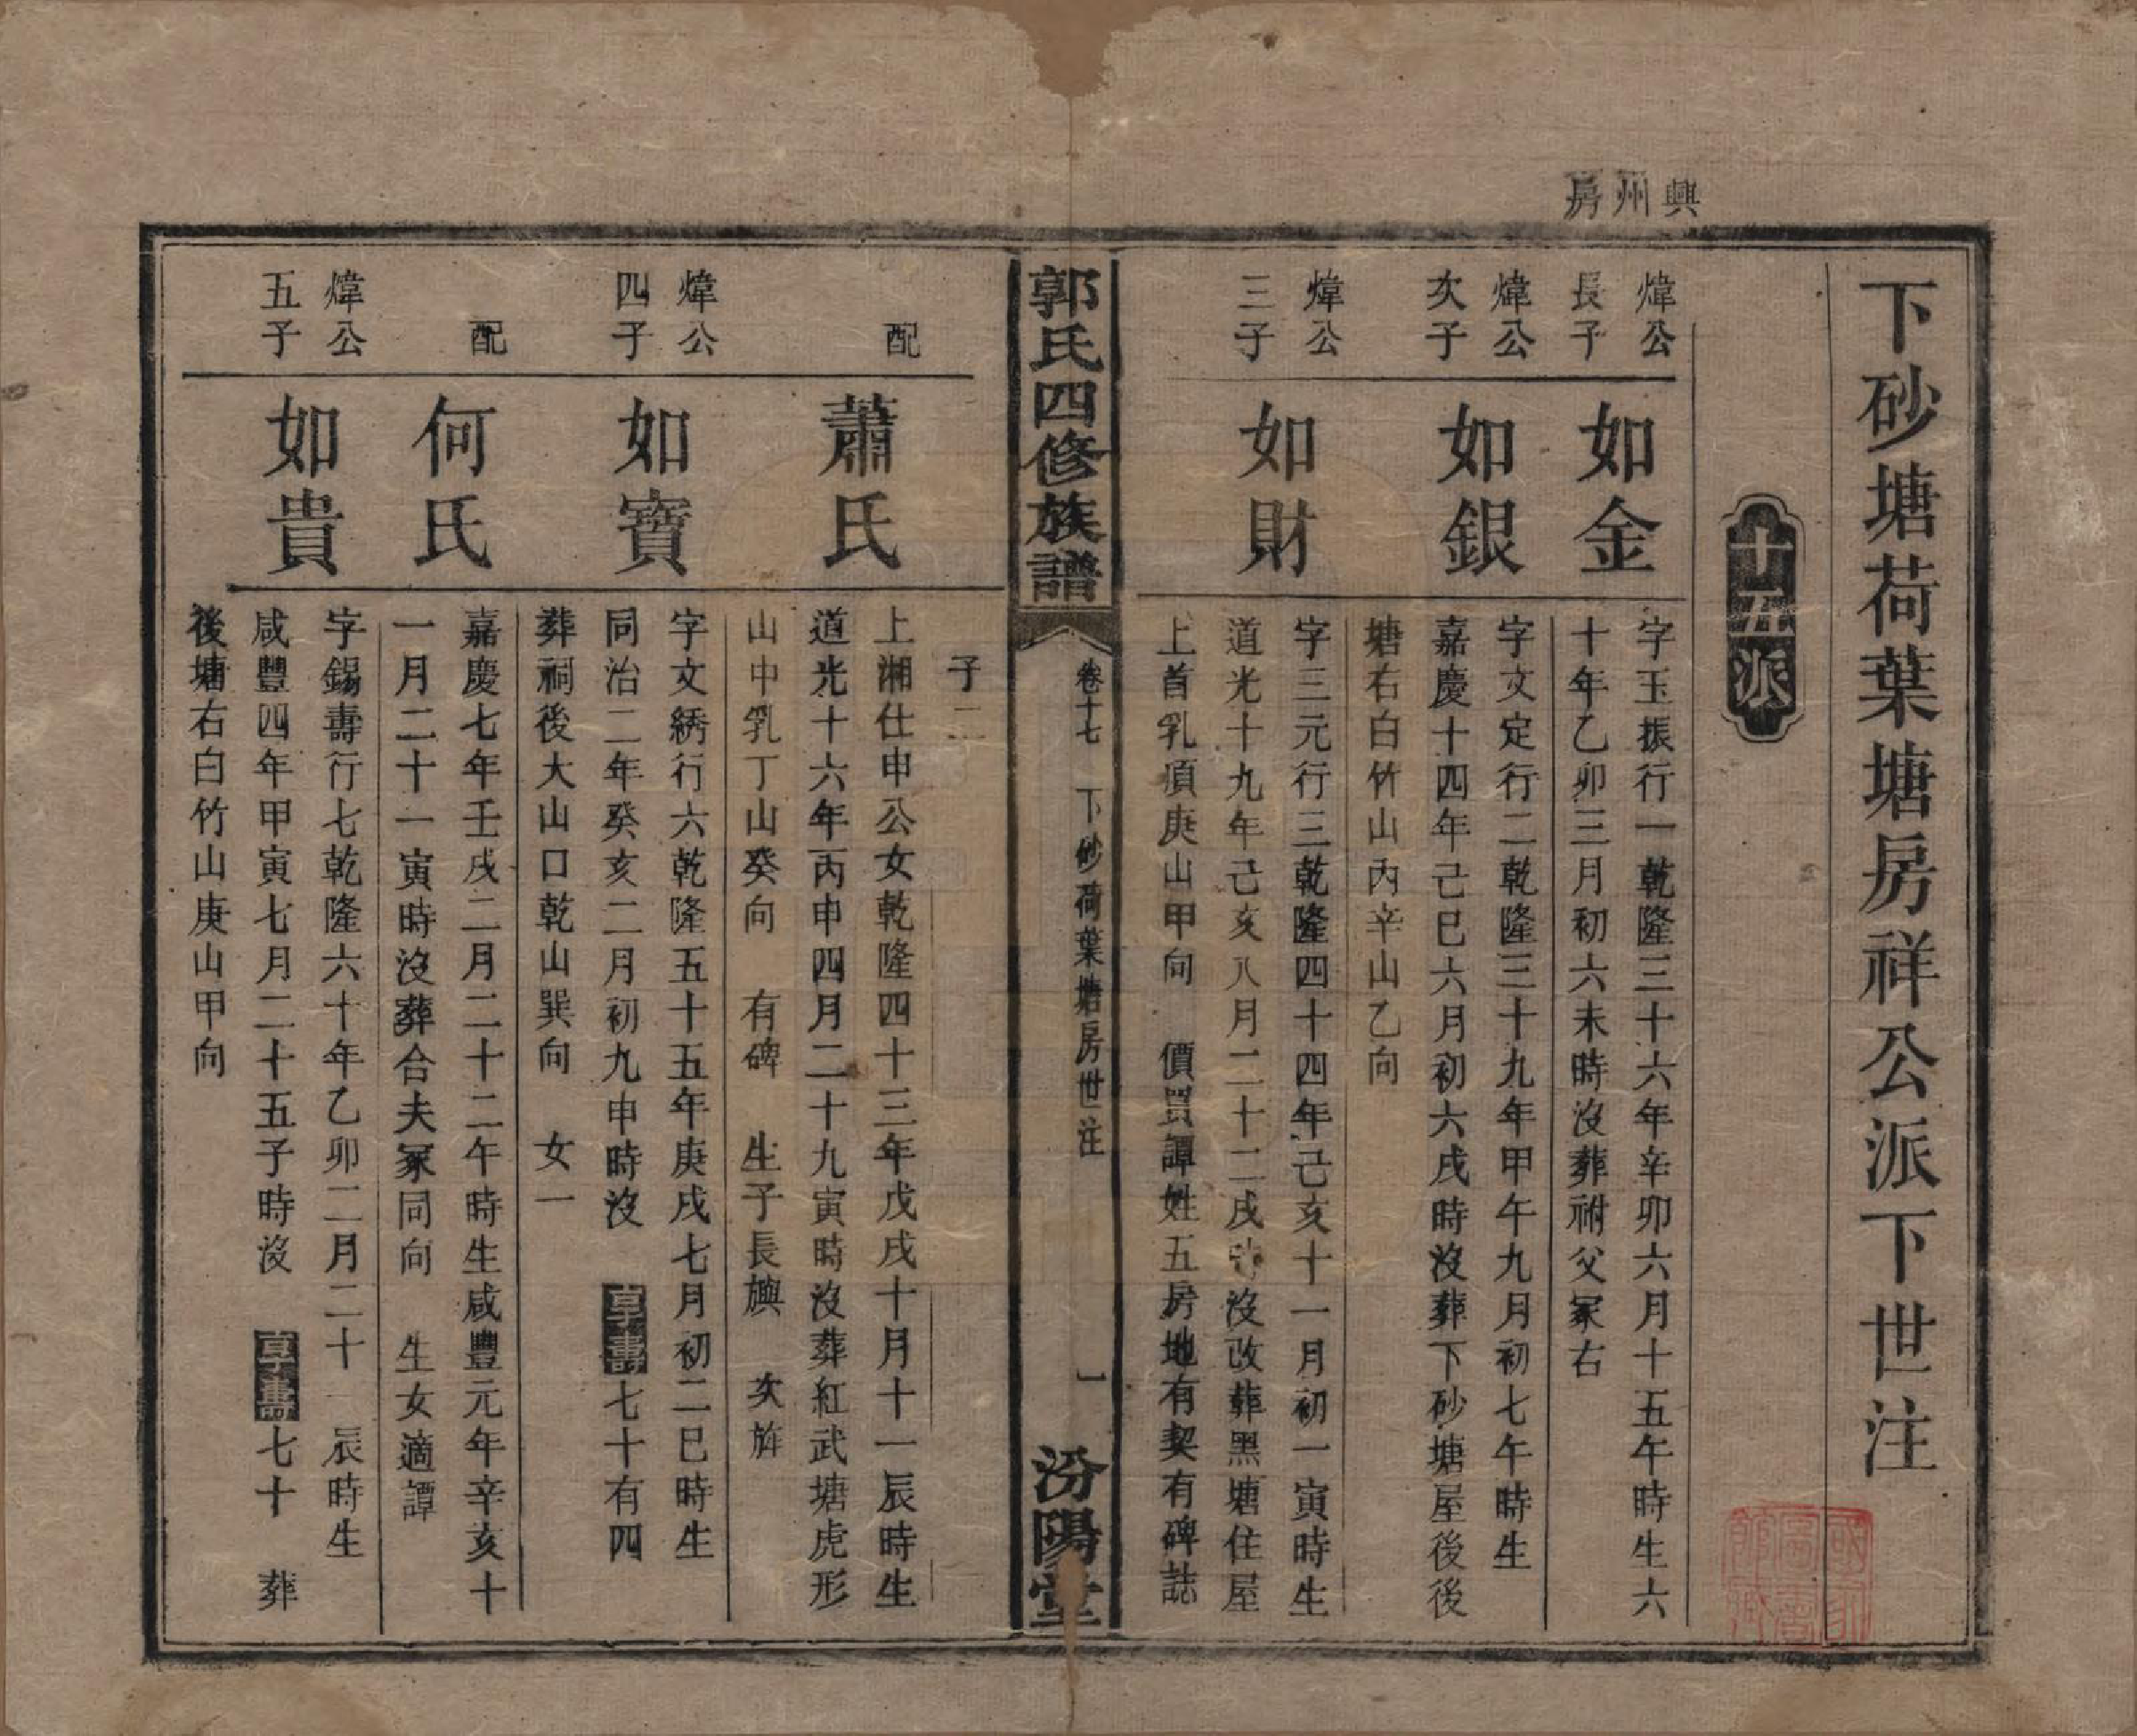 興州房
下砂塘荷葉塘房祥公派下世注
十二派
煒公
長子
如金
字玉振行一乾隆三十六年辛卯六月十五午時生六
十年乙卯三月初六未時沒葬祔父冢右
煒公
次子
如銀
字文定行二乾隆三十九年甲午九月初七午時生
嘉慶十四年己巳六月初六戌時沒葬下砂塘屋後後
塘右白竹山內辛山乙向
煒公
三子
如財
字三元行三乾隆四十四年己亥十一月初一寅時生
道光十九年己亥八月二十二戌時沒改葬黑塘住屋
上首乳項庚山甲向　價買譚姓五房地有契有碑誌
郭氏四修族譜
卷十七　下砂荷葉塘房世注
一
汾陽堂
子二
配
蕭氏
上湘仕申公女乾隆四十三年戊戌十月十一辰時生
道光十六年丙申四月二十九寅時沒葬紅武塘虎形
山中乳丁山癸向　有碑　生子長旟　次旌
煒公
四子
如寶
字文綉行六乾隆五十五年庚戌七月初二巳時生
同治二年癸亥二月初九申時沒　享壽七十有四
葬祠後大山口乾山巽向　女一
配
何氏
嘉慶七年壬戌二月二十二午時生咸豐元年辛亥十
一月二十一寅時沒葬合夫冢同向　生女適譚
煒公
五子
如貴
字錫壽行七乾隆六十年乙卯二月二十一辰時生
咸豐四年甲寅七月二十五子時沒　享壽七十　葬
後塘右白竹山庚山甲向